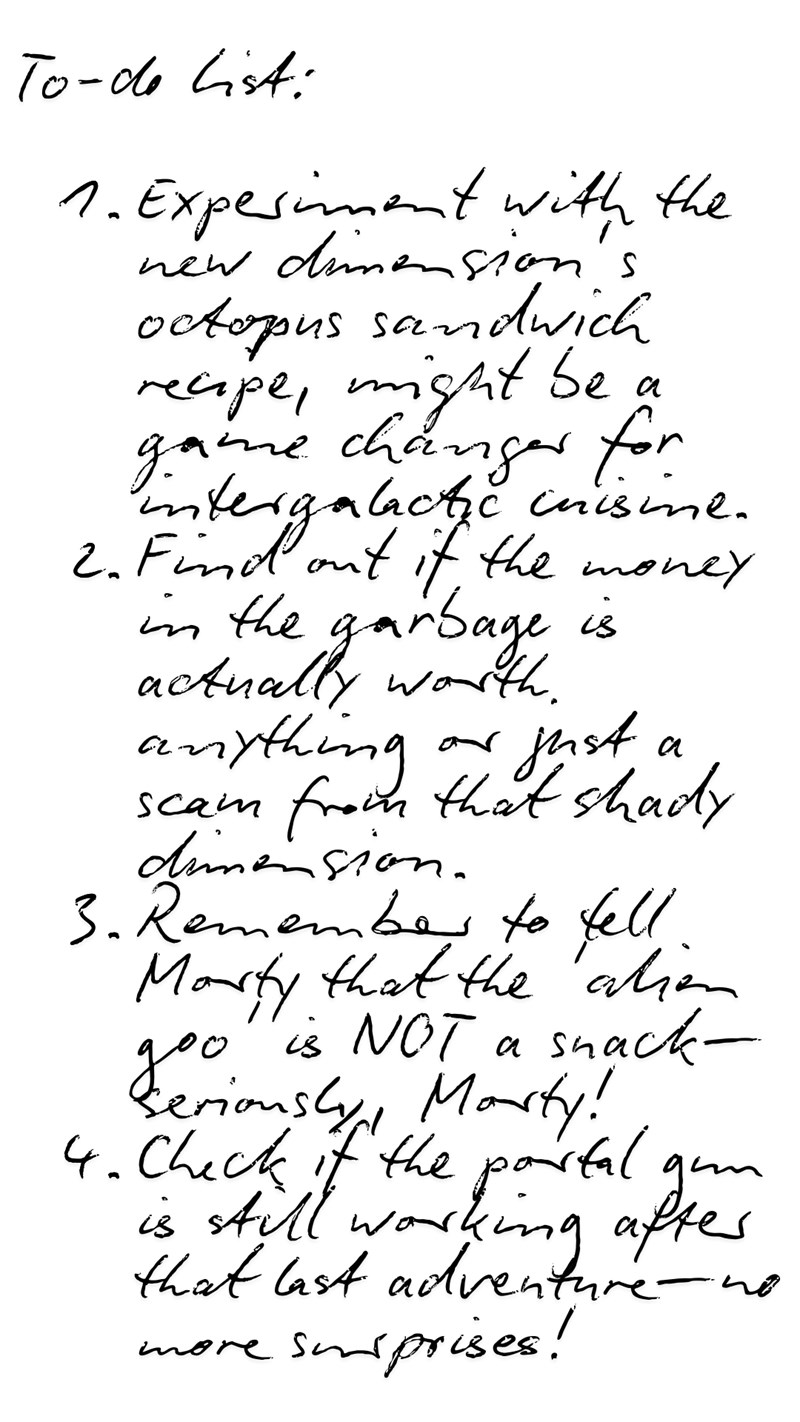 To-do list:
1. Experiment with the
new dimension's
octopus sandwich
recipe, might be a
game changer for
intergalactic cuisine.
2. Find out if the money
in the garbage is
actually worth
anything or just a
scam from that shady
dimension.
3. Remember to tell
Morty that the "alien
goo" is NOT a snack—
seriously, Morty!
4. Check if the portal gun
is still working after
that last adventure—no
more surprises!